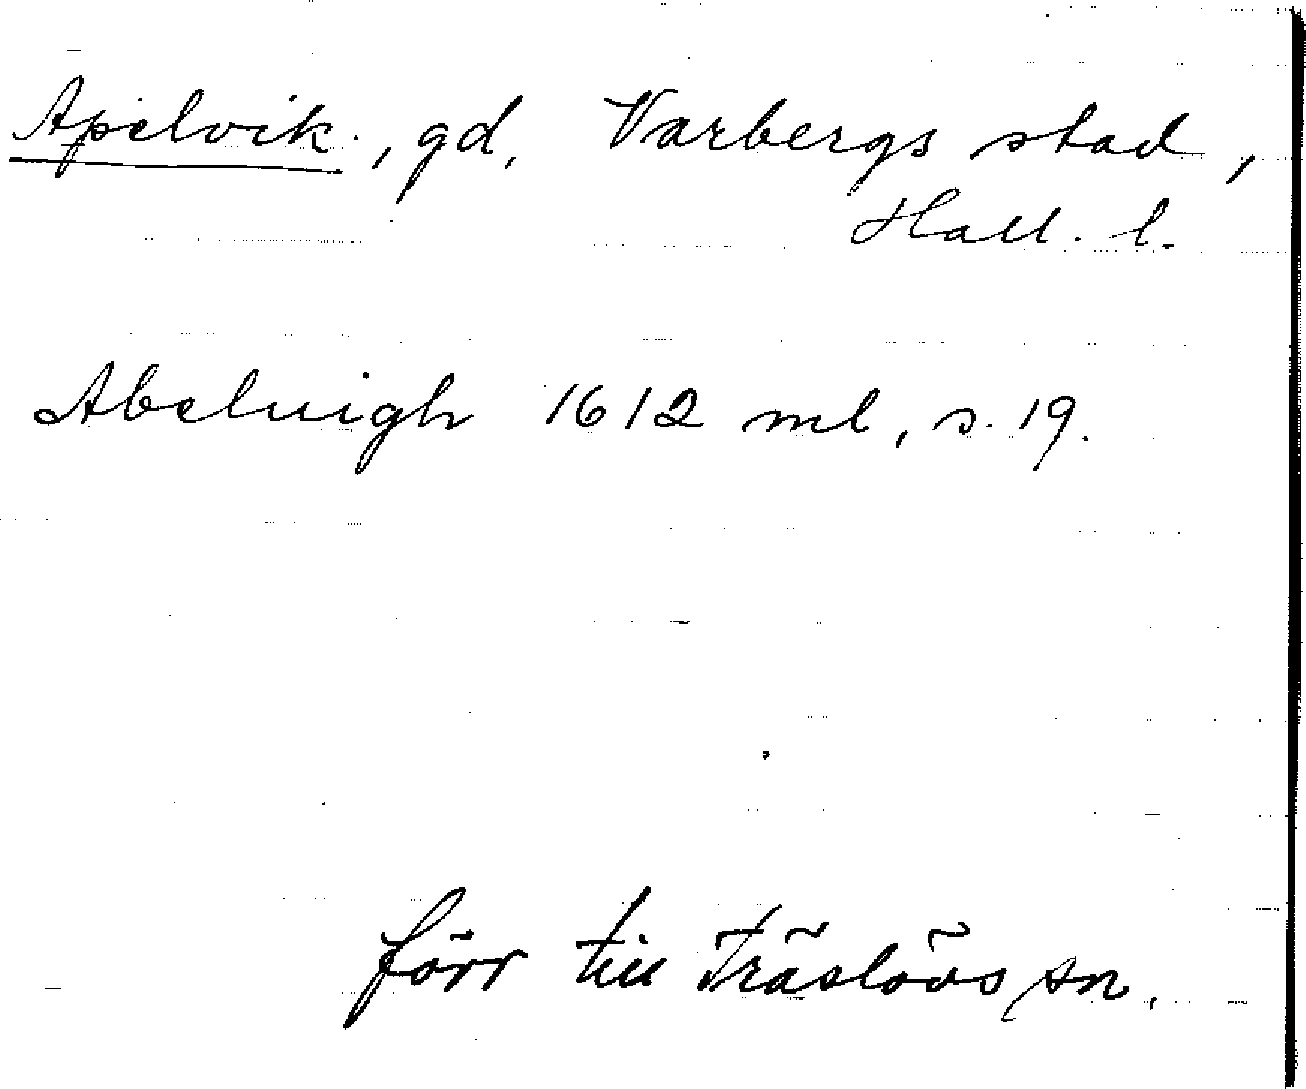 Apelvik, gd, Varbergs stad,
Hall. l.
Abeluigh 1612 ml, s. 19.
förr till Träslövs sn.